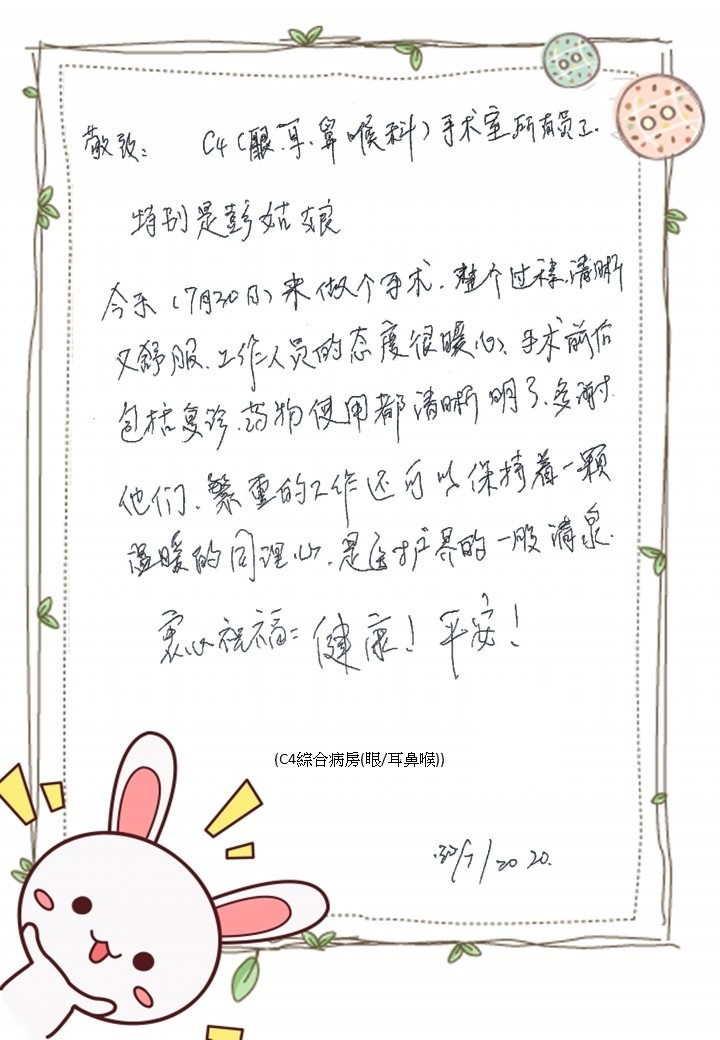 敬致： C4（眼、耳、鼻喉科）手术室所有员工.
特别是彭姑娘
今天（7月30日）来做个手术.整个过程.清晰
又舒服.工作人员的态度很暖心、手术前后
包括复诊.药物使用都清晰明了.多谢.
他们、繁重的工作还可以保持着一颗
温暖的同理心.是医护界的一股清泉.
衷心祝福：健康！平安！
(C4綜合病房(眼/耳鼻喉))
30/7/2020.